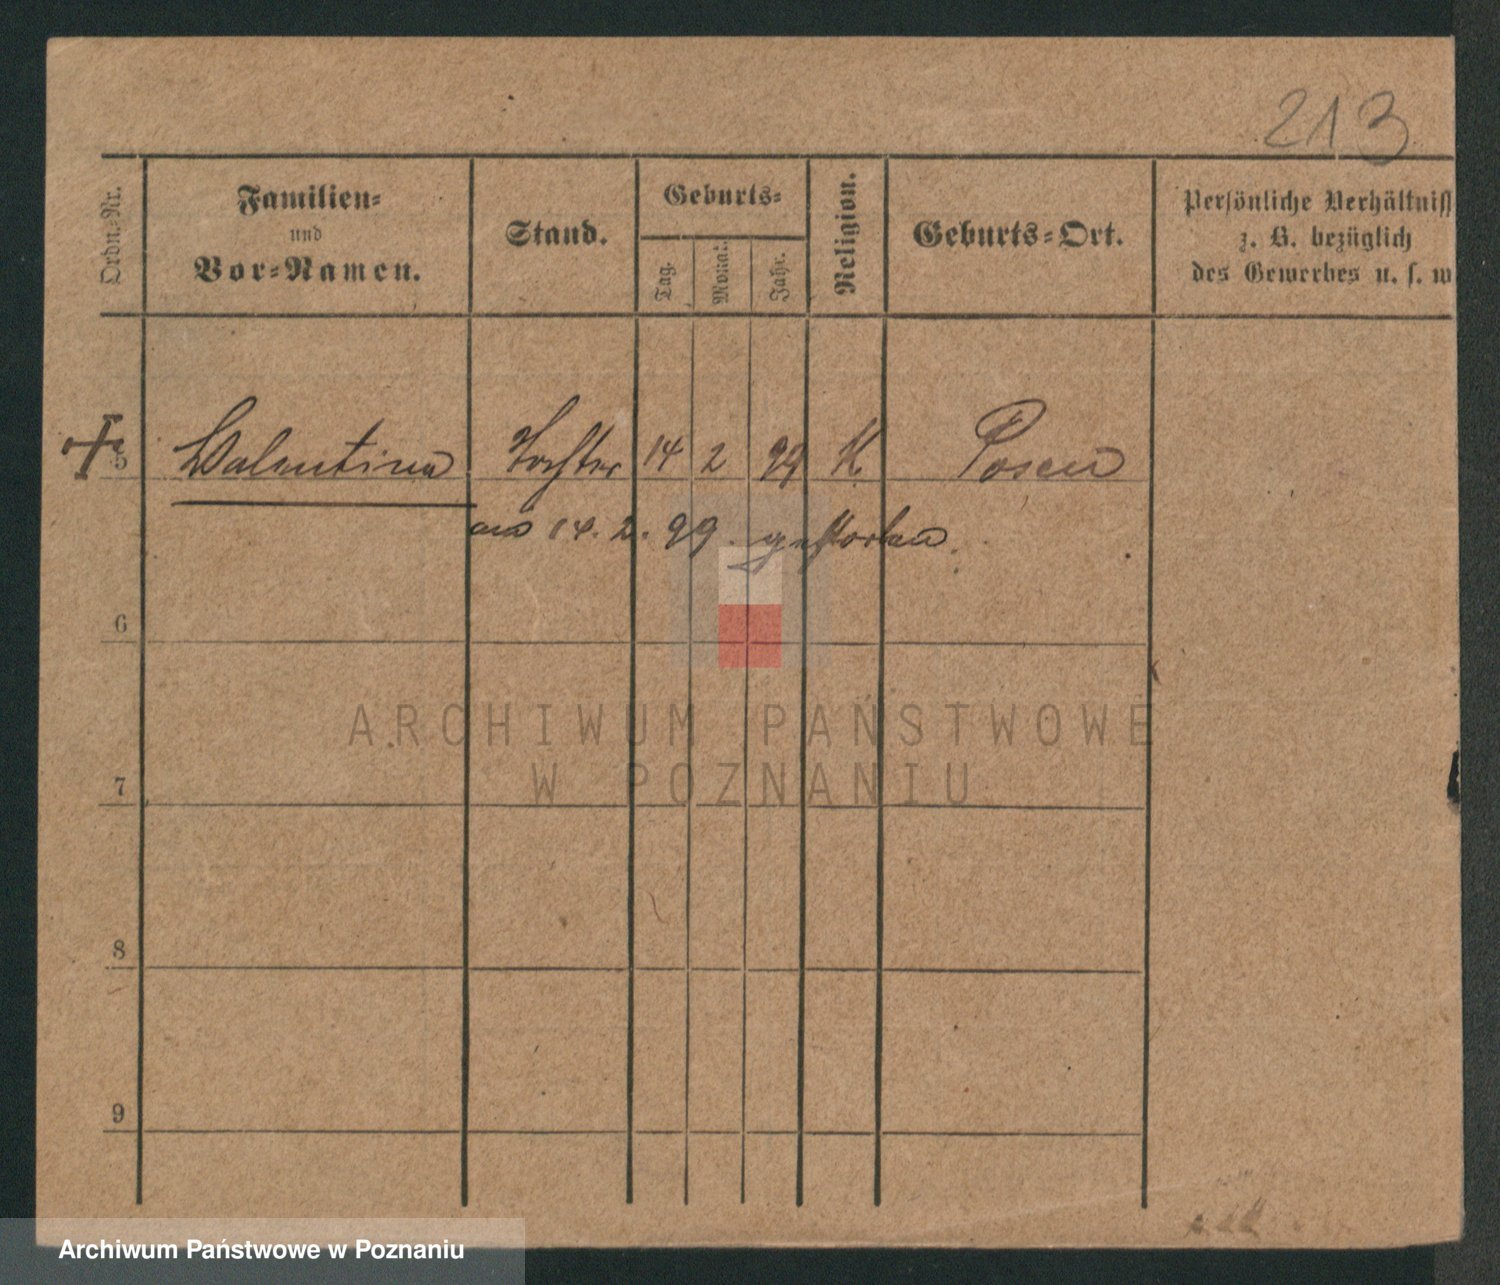 213
Ordn.-Nr.
Familien-
und
Vor-Namen.
Stand.
Geburts-
Tag.
Monat.
Jahr.
Religion.
Geburts-Ort.
Persönliche Verhältniss
z. B. bezüglich
des Gewerbes u. s. w
5 Valentina Tochter 14 2 99 K Posen
am 14. 2. 99. gestorben.
6
ARCHIWUM PAŃSTWOWE
W POZNANIU
7
8
9
Archiwum Państwowe w Poznaniu